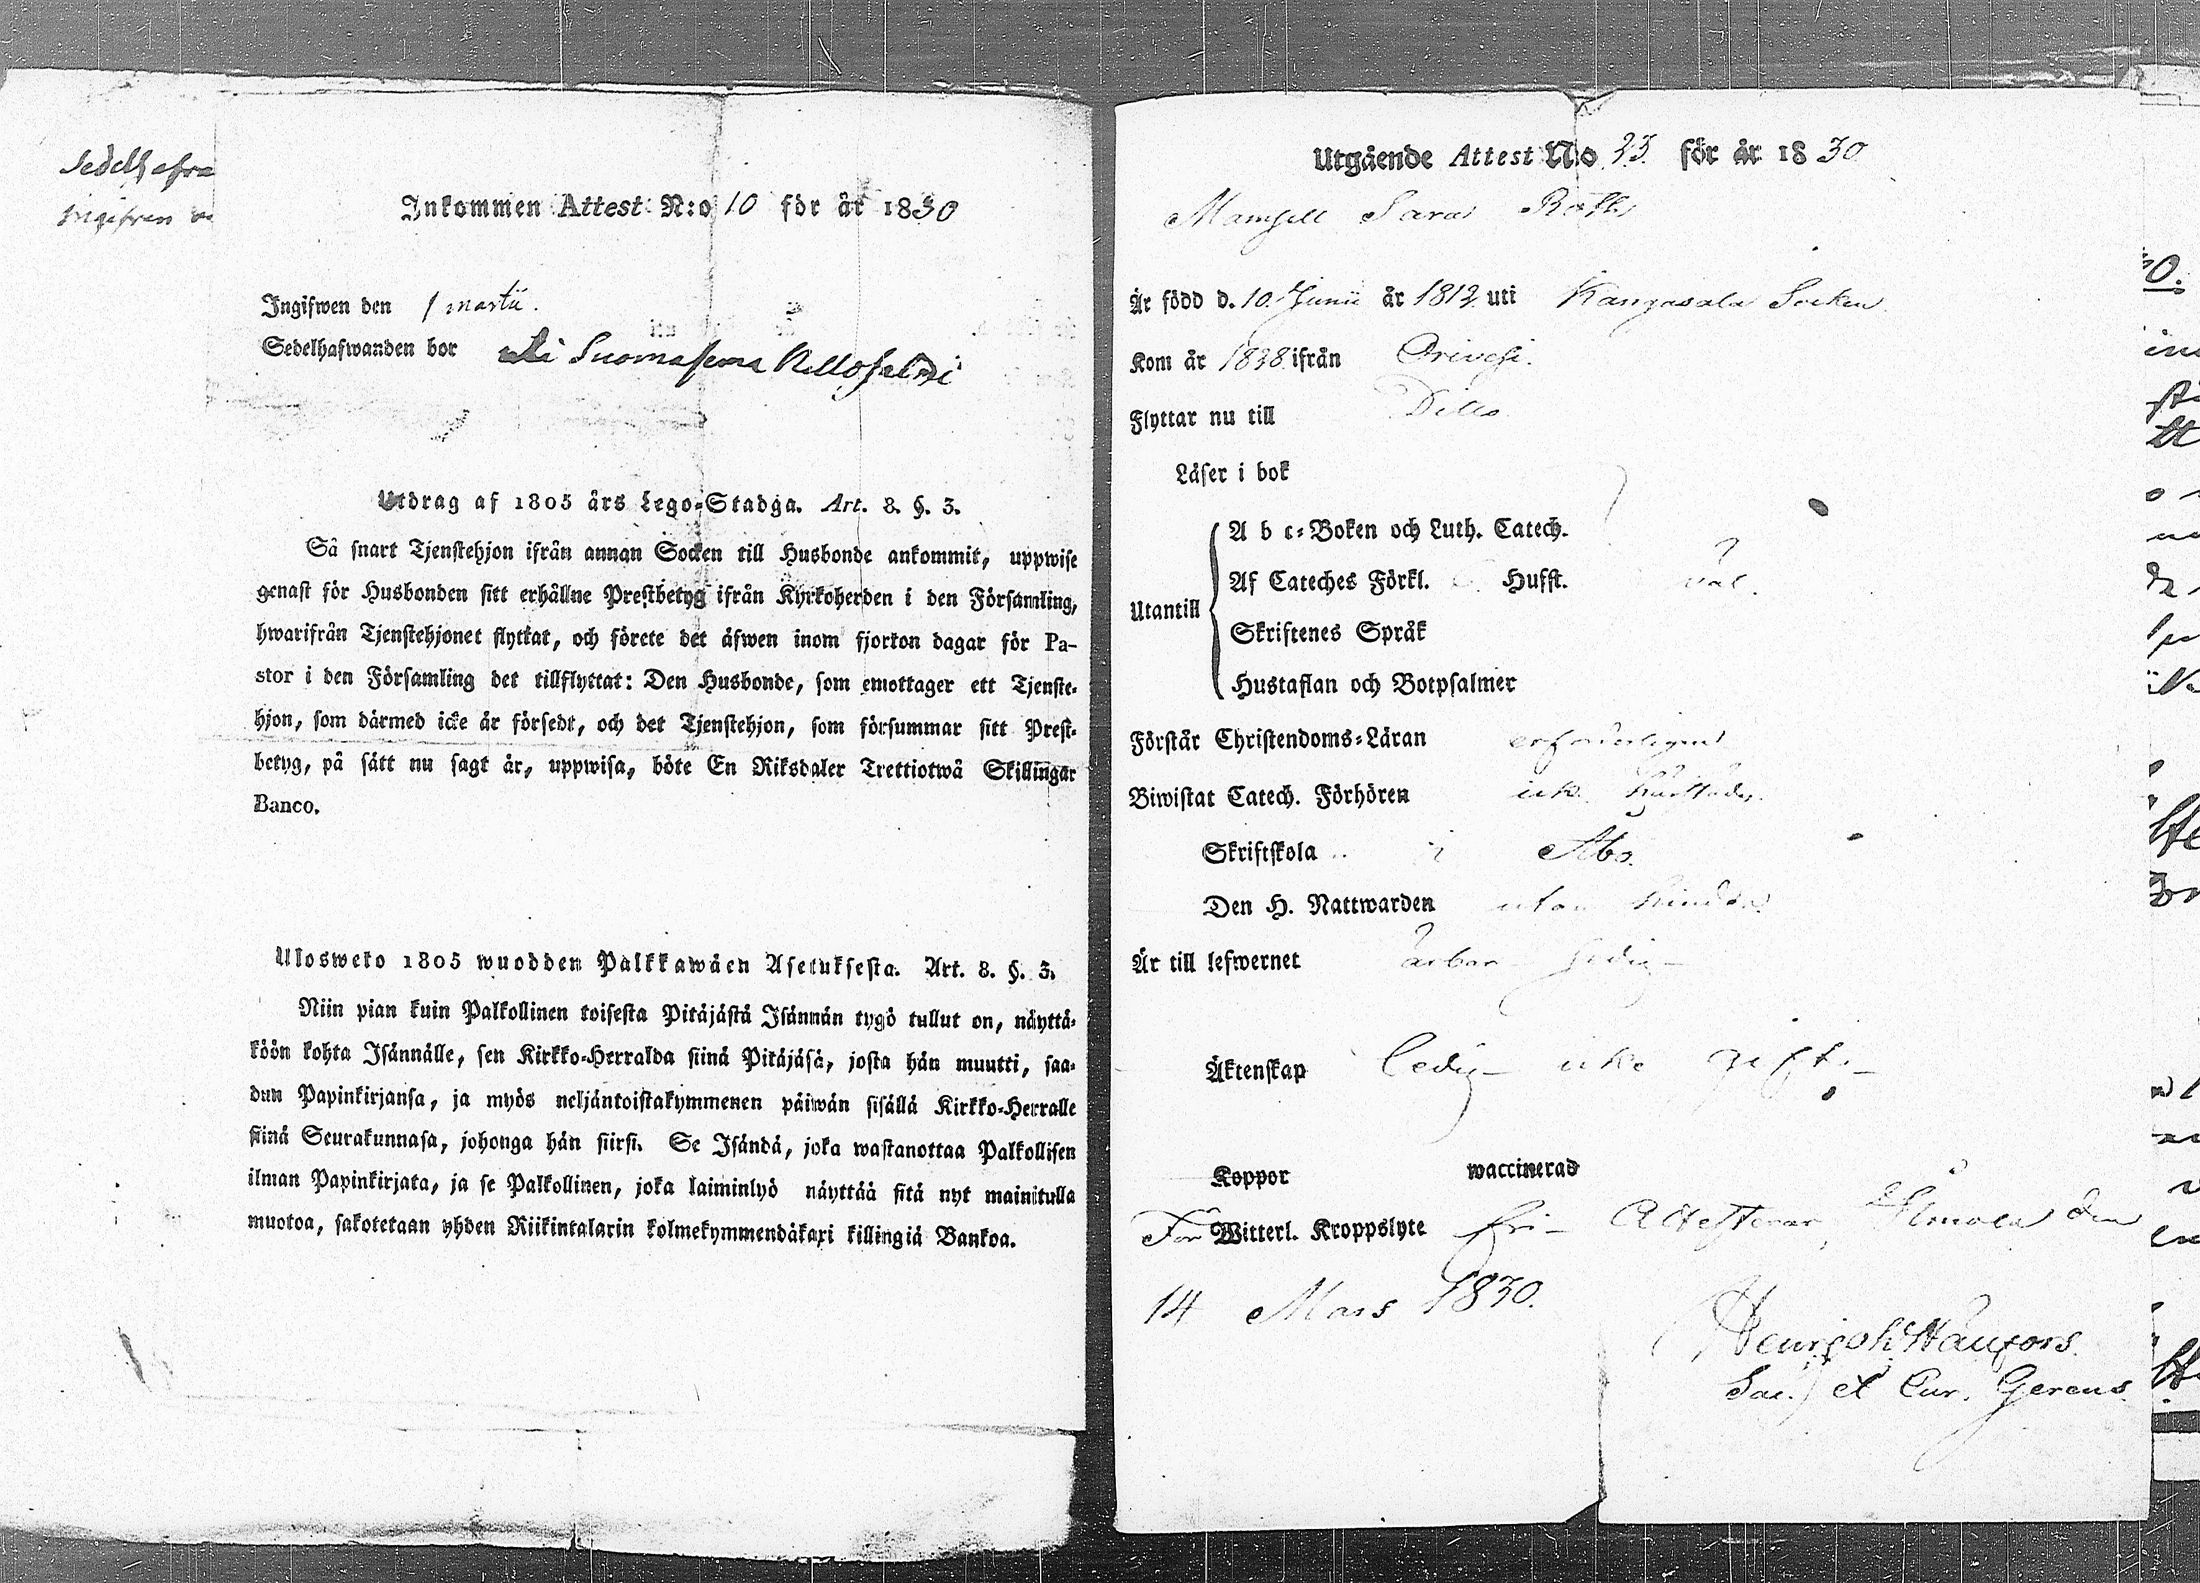 Inkommen Attest N:o 10 för år 1830
Ingifwen den 1 martii.
Sedelhafwanden bor Suomasema
Utdrag af 1805 års Lego-Stadga. Art. 8. §. 3.
Så snart Tjenstehjon ifrån annan Socken till Husbonde ankommit, uppwise
genast för Husbonden sitt erhållne Prestbetyg ifrån Kyrkoherden i den Församling,
hwarifrån Tjenstehjonet flyttat, och förete det äfwen inom fjorton dagar för Pa-
stor i den Församling det tillflyttat: Den Husbonde, som emottager ett Tjenste-
hjon, som därmed icke är försedt, och det Tjenstehjon, som försummar sitt Prest-
betyg, på sätt nu sagt är, uppwisa, böte En Riksdaler Trettiotwå Skillingar
Banco.
Ulosweto 1805 wuodden Palkkawäen Asetuksesta. Art. 8. §. 3.
Niin pian kuin Palkollinen toisesta Pitäjästä Isännän tygö tullut on, näyttä-
köön kohta Isännälle, sen Kirkko-Herralda siinä Pitäjäsä, josta hän muutti, saa-
dun Papinkirjansa, ja myös neljäntoistakymmenen päiwän sisällä Kirkko-Herralle
siinä Seurakunnasa, johonga hän siirsi. Se Isändä, joka wastanottaa Palkollisen
ilman Papinkirjata, ja se Palkollinen, joka laiminlyö näyttää sitä nyt mainitulla
muotoa, sakotetaan yhden Riikintalarin kolmekymmendäkaxi killingiä Bankoa.
Utgående Attest No 23. för år 1830
Mamsell Sara
Är född d. 10. Junii år 1812 uti Kangasala Socken.
Kom år 1828 ifrån Orivesi.
Flyttar nu till Ditto
Läser i bok
A b c-Boken och Luth. Catech.
Af Cateches Förkl. Hufst. väl.
Utantill
Skriftenes Språk
Hustaflan och Botpsalmer
Förstår Christendoms-Läran erforderligen
Biwistat Catech. Förhören ick
Skriftskola i Åbo.
Den H. Nattwarden utan hinder
Är till lefwernet ärbar sedig
Äktenskap ledig icke gift
Koppor waccinerad
För Witterl. Kroppslyte fri Attesterar, den
14 Mars 1830.
Sac. et Cur. Gerens.